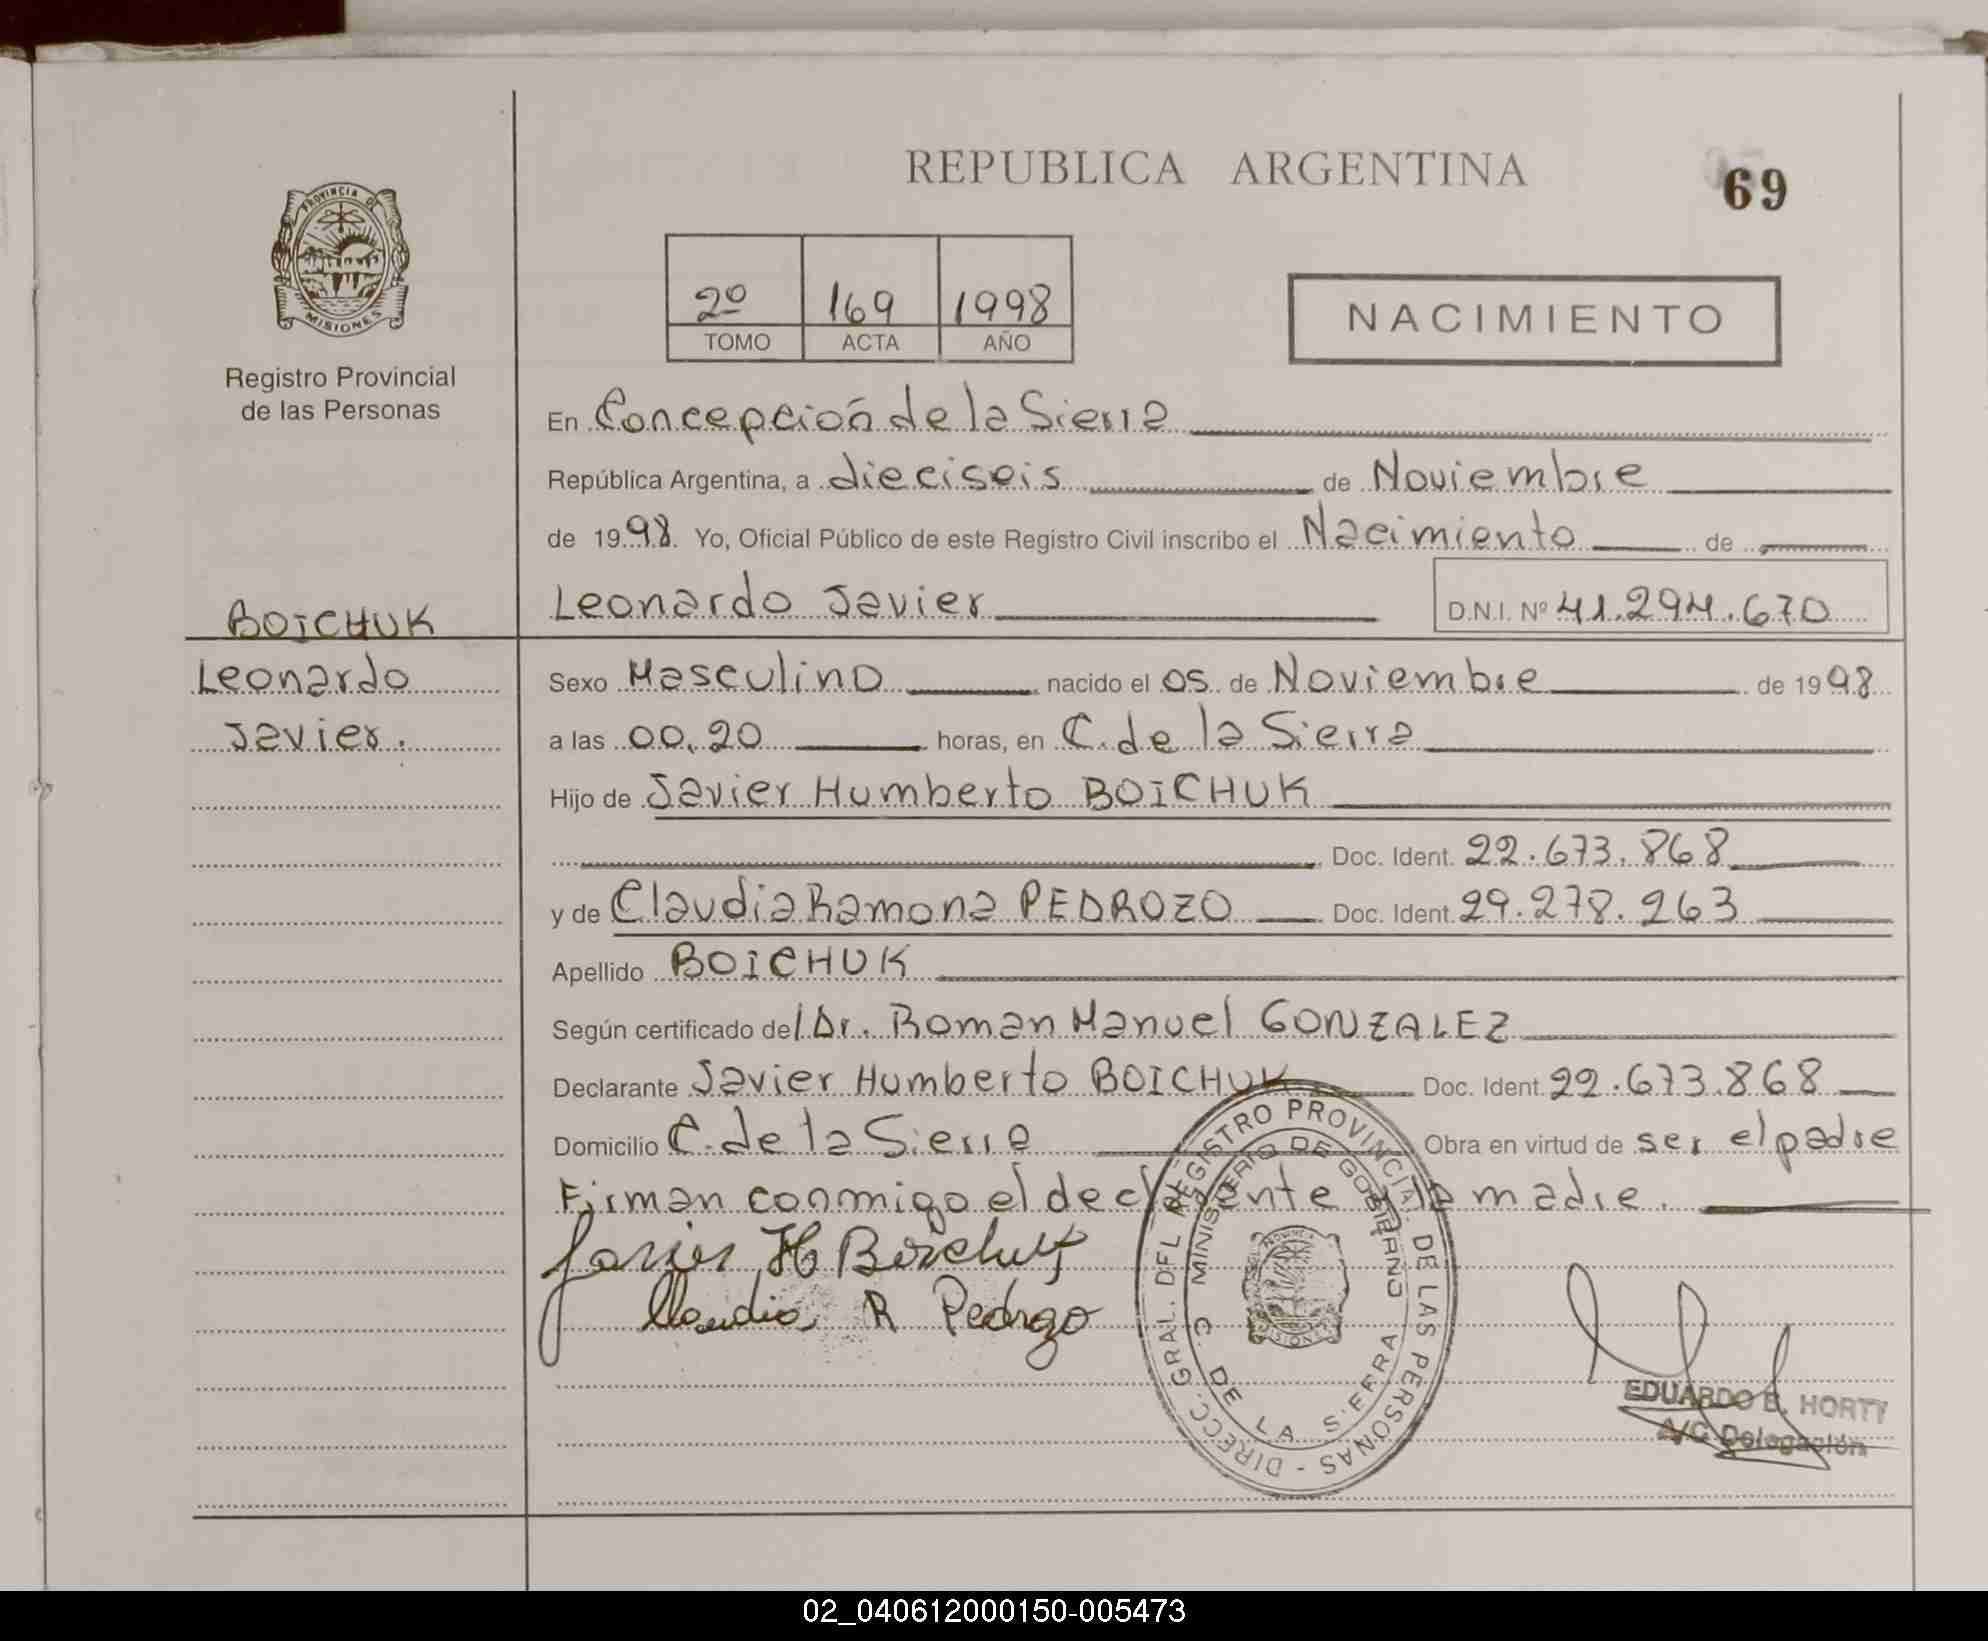 REPUBLICA ARGENTINA
69
PROVINCIA DE
MISIONES
Registro Provincial
de las Personas
2º 169 1998
TOMO ACTA AÑO
NACIMIENTO
En Concepción de la Sierra
República Argentina, a dieciseis de Noviembre
de 1998. Yo, Oficial Público de este Registro Civil inscribo el Nacimiento de
BOICHUK
Leonardo Javier D.N.I. Nº 41.294.670
Leonardo
Javier.
Sexo Masculino nacido el 05 de Noviembre de 1998
a las 00,20 horas, en C. de la Sierra
Hijo de Javier Humberto BOICHUK
Doc. Ident. 22.673.868
y de Claudia Ramona PEDROZO Doc. Ident. 29.278.263
Apellido BOICHUK
Según certificado del Dr. Roman Manuel GONZALEZ
Declarante Javier Humberto BOICHUK Doc. Ident. 22.673.868
Domicilio C. de la Sierra Obra en virtud de ser el padre
Firman conmigo el declarante y la madre.
Javier H Boichuk
Claudia R Pedrozo
DIRECC. GRAL. DEL REGISTRO PROVINCIAL DE LAS PERSONAS -
MINISTERIO DE GOBIERNO
C. DE LA SIERRA
MISIONES
EDUARDO E. HORTT
A/C Delegación
02_040612000150-005473